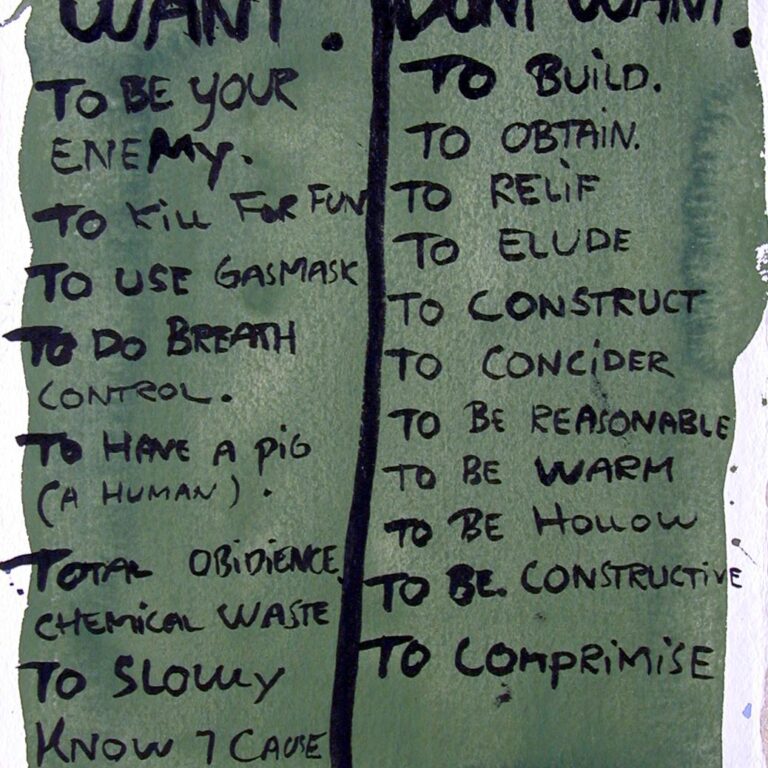 WANT.
TO BE YOUR
ENEMY.
TO KILL FOR FUN
TO USE GASMASK
TO DO BREATH
CONTROL.
TO HAVE A PIG
(A HUMAN).
TOTAL OBIDIENCE.
CHEMICAL WASTE
TO SLOWLY
KNOW 7 CAUSE
DONT WANT.
TO BUILD.
TO OBTAIN.
TO RELIF
TO ELUDE
TO CONSTRUCT
TO CONCIDER
TO BE REASONABLE
TO BE WARM
TO BE HOLLOW
TO BE. CONSTRUCTIVE
TO COMPRIMISE